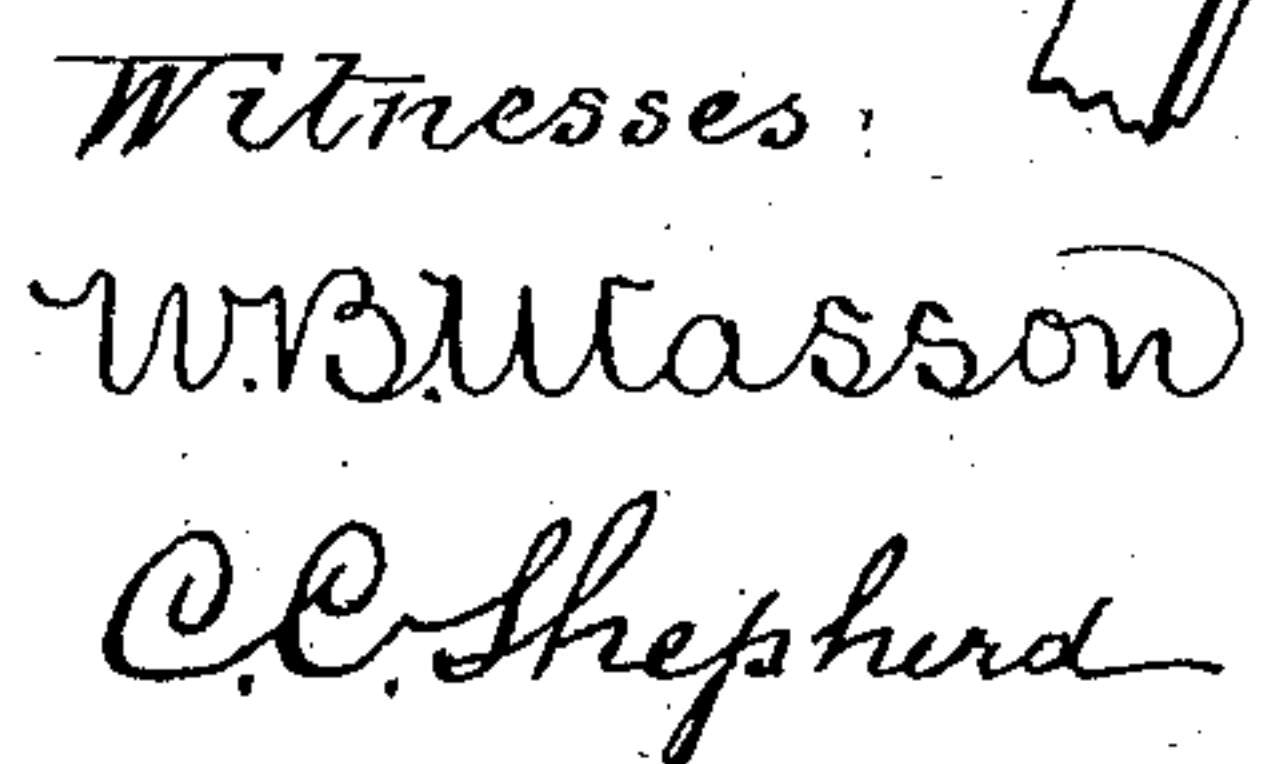 Witnesses:
W.B.Masson
C.C.Shepherd